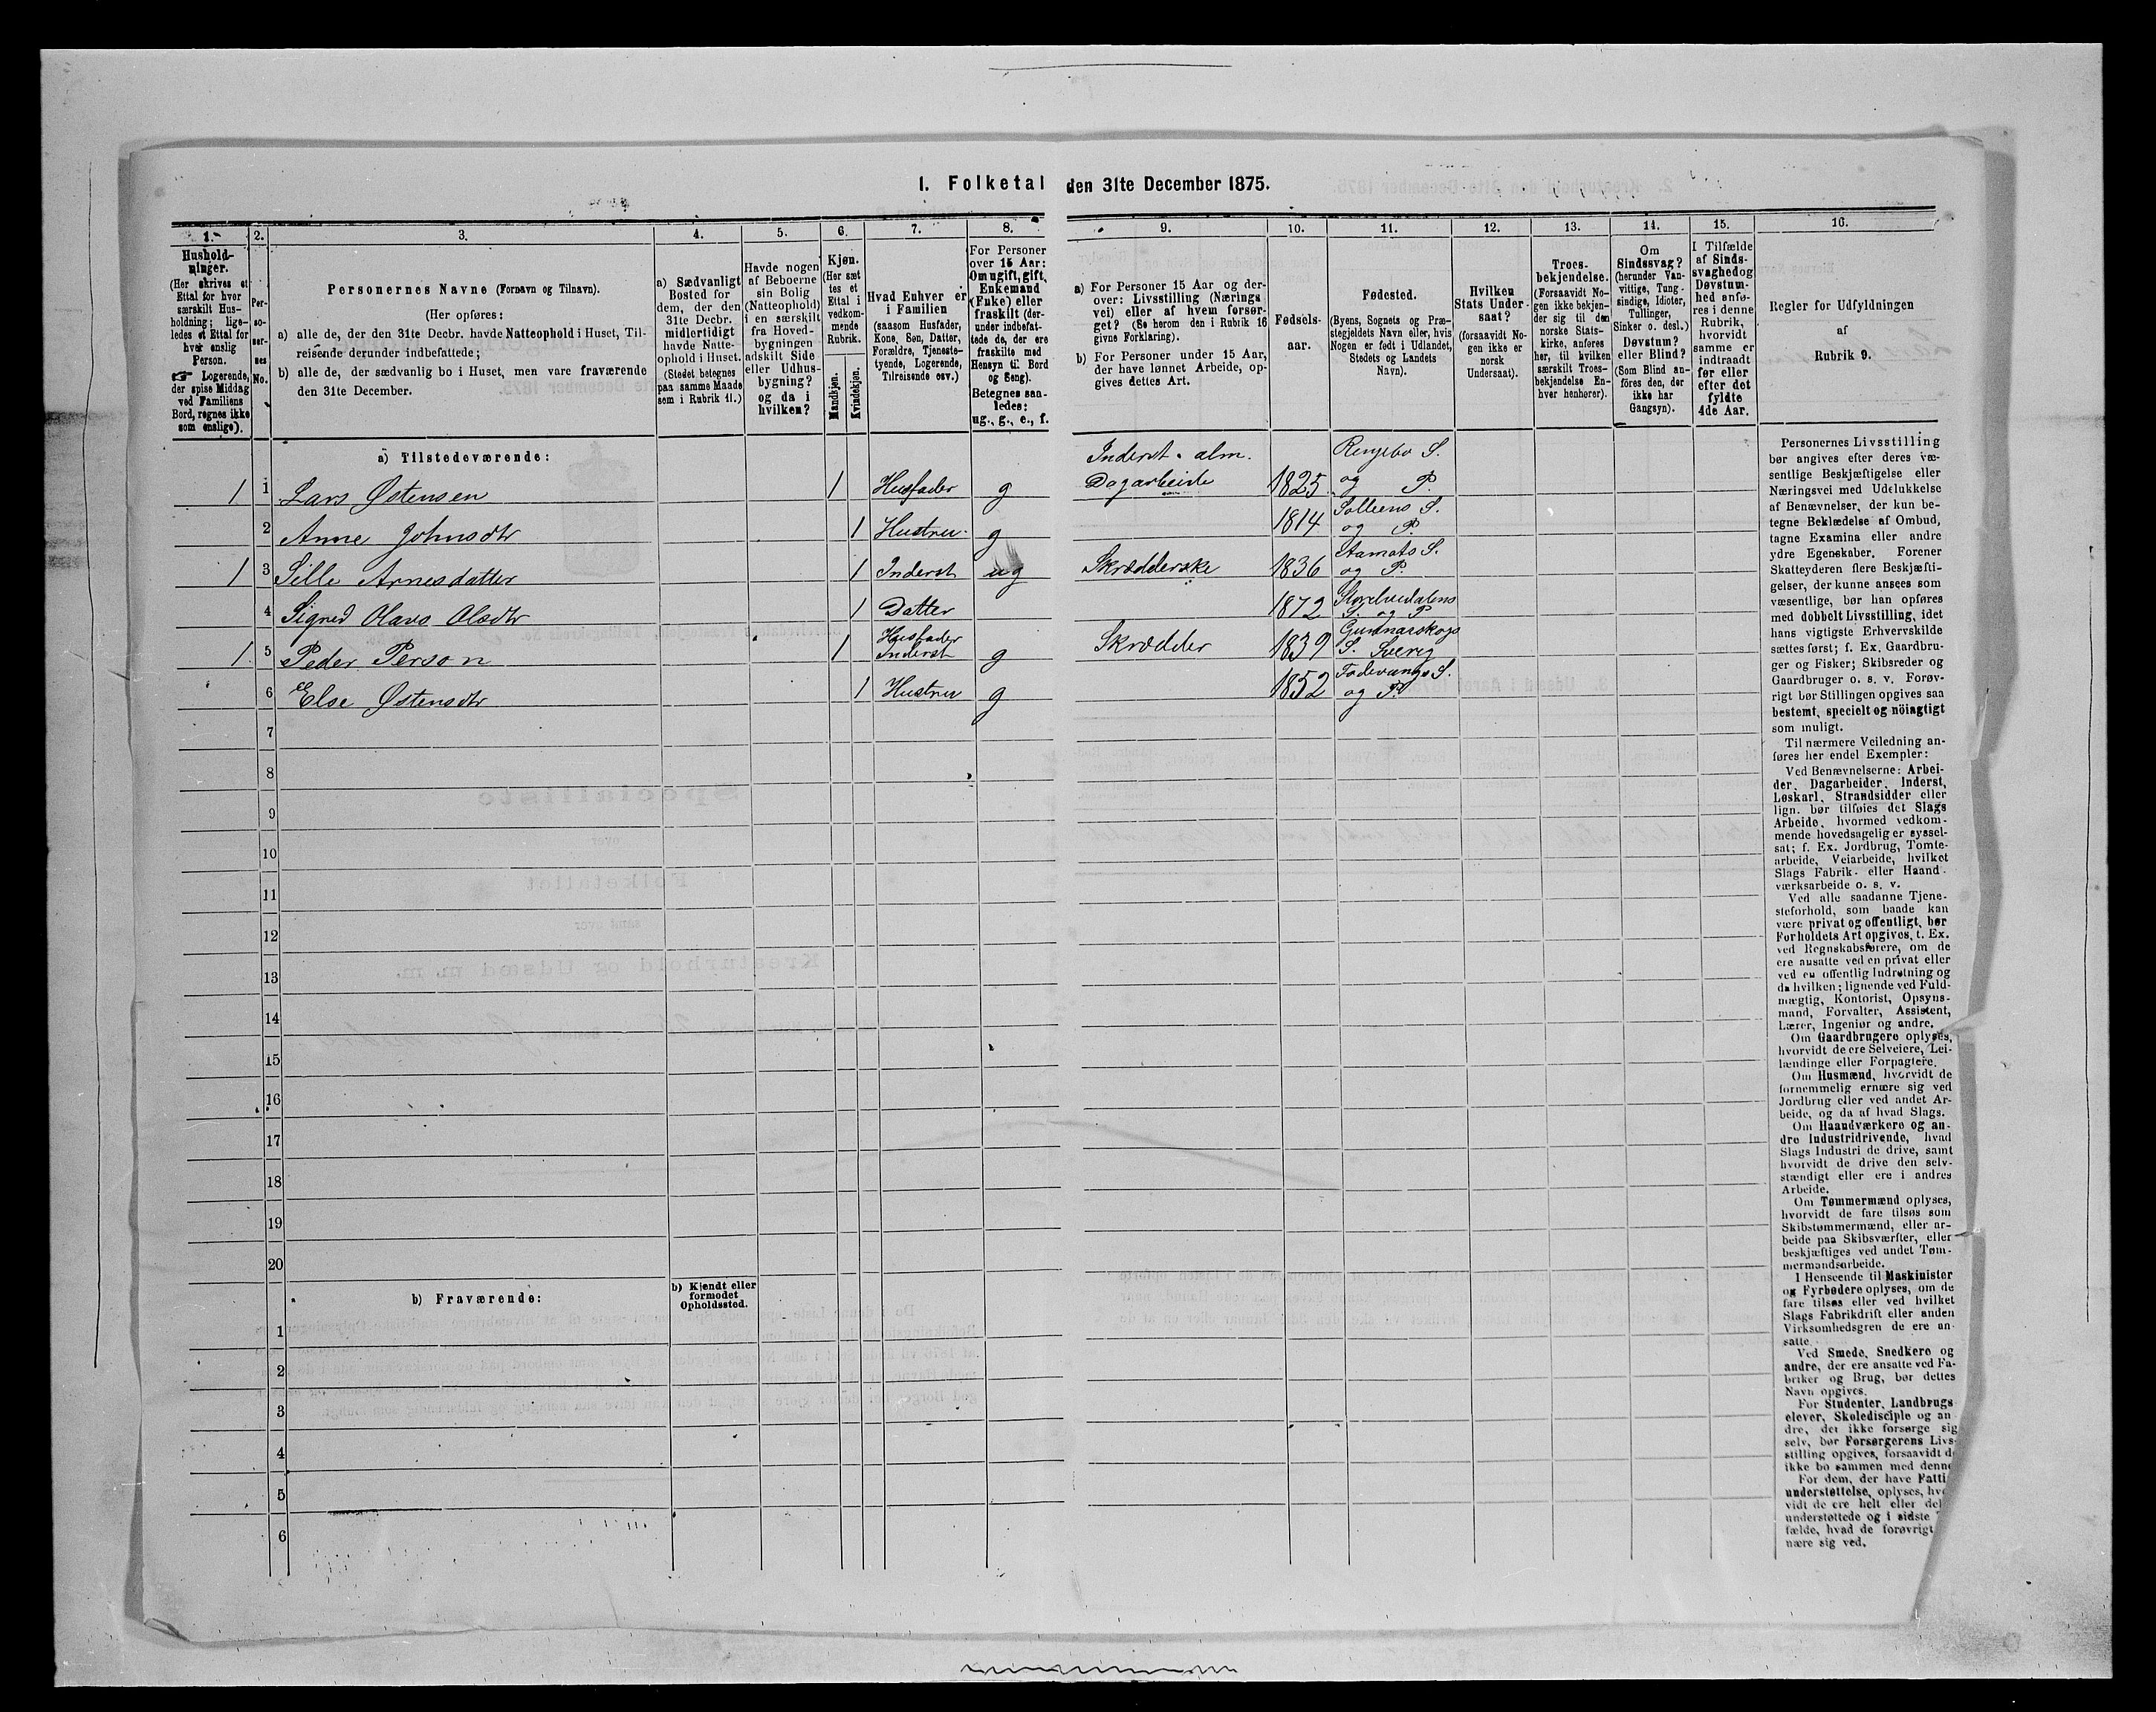 1. Folketal den 31te December 1875.
1. 2. 3. 4. 5. 6. 7. 8. 9. 10. 11. 12. 13. 14. 15. 16.
Hushold-
ninger.
(Her skrives et
Ettal for hver
særskilt Hus-
holdning; lige-
ledes et Ettal for
hver enslig
Person.
☞ Logerende,
der spise Middag
ved Familiens
Bord, regnes ikke
som enslige).
Per-
so-
ner-
nes
No.
Personernes Navne (Fornavn og Tilnavn).
(Her opføres:
a) alle de, der den 31te Decbr. havde Natteophold i Huset, Til-
reisende derunder indbefattede;
b) alle de, der sædvanlig bo i Huset, men vare fraværende
den 31te December.
a) Sædvanligt
Bosted for
dem, der den
31te Decbr.
midlertidigt
havde Natte-
ophold i Huset.
(Stedet betegnes
paa samme Maade
som i Rubrik 11.)
Havde nogen
af Beboerne
sin Bolig
(Natteophold)
i en særskilt
fra Hoved-
bygningen
adskilt Side
eller Udhus-
bygning?
og da i
hvilken?
Kjøn.
(Her sæt
tes et
Ettal i
vedkom-
mende
Rubrik.
Mandkjøn.
Kvindekjøn.
Hvad Enhver er
i Familien
(saasom Husfader,
Kone, Søn, Datter,
Forældre, Tjeneste-
tyende, Logerende,
Tilreisende osv.)
For Personer
over 15 Aar:
Om ugift, gift,
Enkemand
(Enke) eller
fraskilt (der-
under indbefat-
tede de, der ere
fraskilte med
Hensyn til Bord
og Seng).
Betegnes saa-
ledes:
ug., g., e., f.
a) For Personer 15 Aar og der-
over: Livsstilling (Nærings
vei) eller af hvem forsør-
get? (Se herom den i Rubrik 16
givne Forklaring).
b) For Personer under 15 Aar,
der have lønnet Arbeide, op-
gives dettes Art.
Fødsels-
aar.
Fødested.
(Byens, Sognets og Præ-
stegjeldets Navn eller, hvis
Nogen er født i Udlandet,
Stedets og Landets
Navn).
Hvilken
Stats Under-
saat?
(forsaavidt No-
gen ikke er
norsk
Undersaat).
Troes-
bekjendelse.
(Forsaavidt No-
gen ikke bekjen-
der sig til den
norske Stats-
kirke, anføres
her, til hvilken
særskilt Troes-
bekjendelse En-
hver henhører).
Om
Sindssvag?
(herunder Van-
vittige, Tung-
sindige, Idioter,
Tullinger,
Sinker o. desl.)
Døvstum?
eller Blind?
(Som Blind an-
føres den, der
ikke har
Gangsyn).
I Tilfælde
af Sinds-
svaghed og
Døvstum-
hed anfø-
res i denne
Rubrik,
hvorvidt
samme er
indtraadt
før eller
efter det
fyldte
4de Aar.
Regler for Udfyldningen
af
Rubrik 9.
a) Tilstedeværende:
1 1 Lars Østensen 1 Husfader g Inderst. alm. Dagarbeide 1825 Ringebo S. og P.
2 Anne Johnsdtr 1 Hustru g 1814 Solliens S. og P.
1 3 Sille Arnesdatter 1 Inderst ug Skrædderske 1836 Aamots S. og P.
4 Sigrid Olava Olsdtr 1 Datter 1872 Storelvedalens S. og P
1 5 Peder Person 1 Husfader Inderst g Skrædder 1839 Gunnarskogs S. Sverig
6 Else Østensdtr 1 Hustru g 1852 S. og P.
7
8
9
10
11
12
13
14
15
16
17
18
19
20
b) Fraværende:
b) Kjendt eller
formodet
Opholdssted.
1
2
3
4
5
6
Personernes Livsstilling
bør angives efter deres væ-
sentlige Beskjæftigelse eller
Næringsvei med Udelukkelse
af Benævnelser, der kun be-
tegne Beklædelse af Ombud,
tagne Examina eller andre
ydre Egenskaber. Forener
Skatteyderen flere Beskjæfti-
gelser, der kunne ansees som
væsentlige, bør han opføres
med dobbelt Livsstilling, idet
hans vigtigste Erhvervskilde
sættes først; f. Ex. Gaardbru-
ger og Fisker; Skibsreder og
Gaardbruger o. s. v. Forøv-
rigt bør Stillingen opgives saa
bestemt, specielt og nöiagtigt
som muligt.
Til nærmere Veiledning an-
føres her endel Exempler:
Ved Benævnelserne: Arbei-
der, Dagarbeider, Inderst,
Løskarl, Strandsidder eller
lign. bør tilføies det Slags
Arbeide, hvormed vedkom-
mende hovedsagelig er syssel-
sat; f. Ex. Jordbrug, Tomte-
arbeide, Veiarbeide, hvilket
Slags Fabrik- eller Haand-
værksarbeide o. s. v.
Ved alle saadanne Tjene-
steforhold, som baade kan
være privat og offentligt, bør
Forholdets Art opgives, t. Ex.
ved Regnskabsførere, om de
ere ansatte ved en privat eller
ved en offentlig Indretning og
da hvilken; lignende ved Fuld-
mægtig, Kontorist, Opsyns-
mand, Forvalter, Assistent,
Lærer, Ingeniør og andre.
Om Gaardbrugere oplyses,
hvorvidt de ere Selveiere, Lei-
lændinge eller Forpagtere.
Om Husmænd, hvorvidt de
fornemmelig ernære sig ved
Jordbrug eller ved andet Ar-
beide, og da af hvad Slags.
Om Haandværkere og an-
dre Industridrivende, hvad
Slags Industri de drive, samt
hvorvidt de drive den selv-
stændigt eller ere i andres
Arbeide.
Om Tømmermænd oplyses,
hvorvidt de fare tilsøs som
Skibstømmermænd, eller ar-
beide paa Skibsværfter, eller
beskjæftiges ved andet Tøm-
mermandsarbeide.
I Henseende til Maskinister
og Fyrbødere oplyses, om de
fare tilsøs eller ved hvilket
Slags Fabrikdrift eller anden
Virksomhedsgren de ere an-
satte.
Ved Smede, Snedkere og
andre, der ere ansatte ved Fa-
briker og Brug, bør dettes
Navn opgives.
For Studenter, Landbrugs
elever, Skoledisciple og an
dre, der ikke forsørge sig
selv, bør Forsørgerens Livs-
stilling opgives, forsaavidt de
ikke bo sammen med denne
For dem, der have Fatti
understøttelse, oplyses, hvo
vidt de ere helt eller del
understøttede og i sidste
fælde, hvad de forøvrigt
nære sig ved.